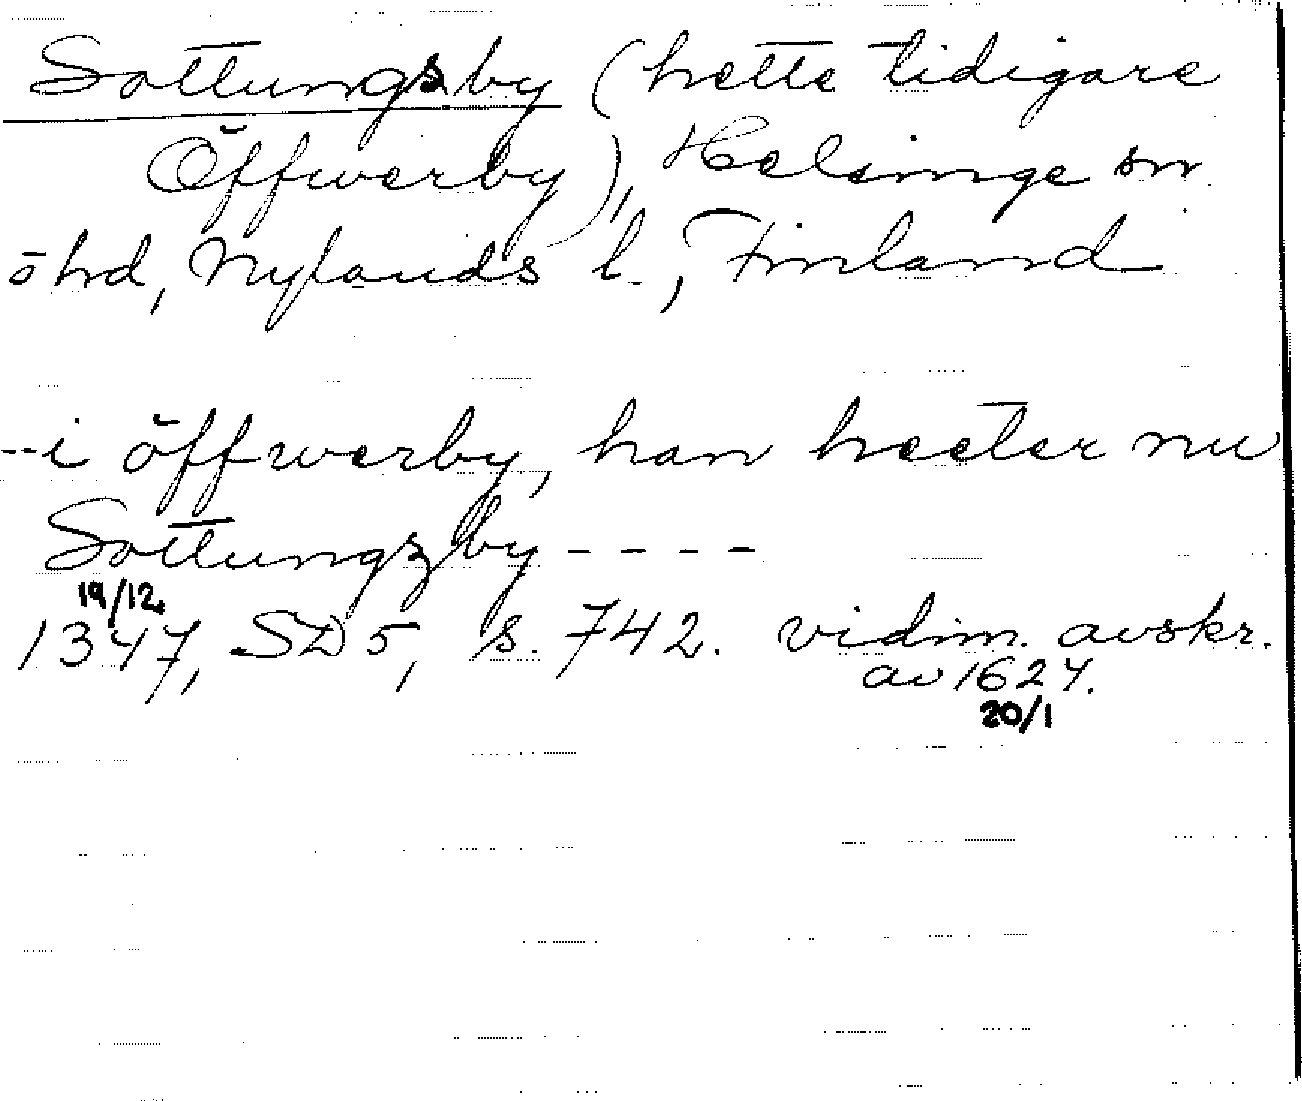 Sottungsby (hette tidigare
Öffwerby), Helsinge sn
ö hd, Nylands l., Finland
--i öffwerby, han heeter nu
Sottungzby - - - -
19/12.
1347, SD 5, s. 742. vidim. avskr.
av 1627.
20/1